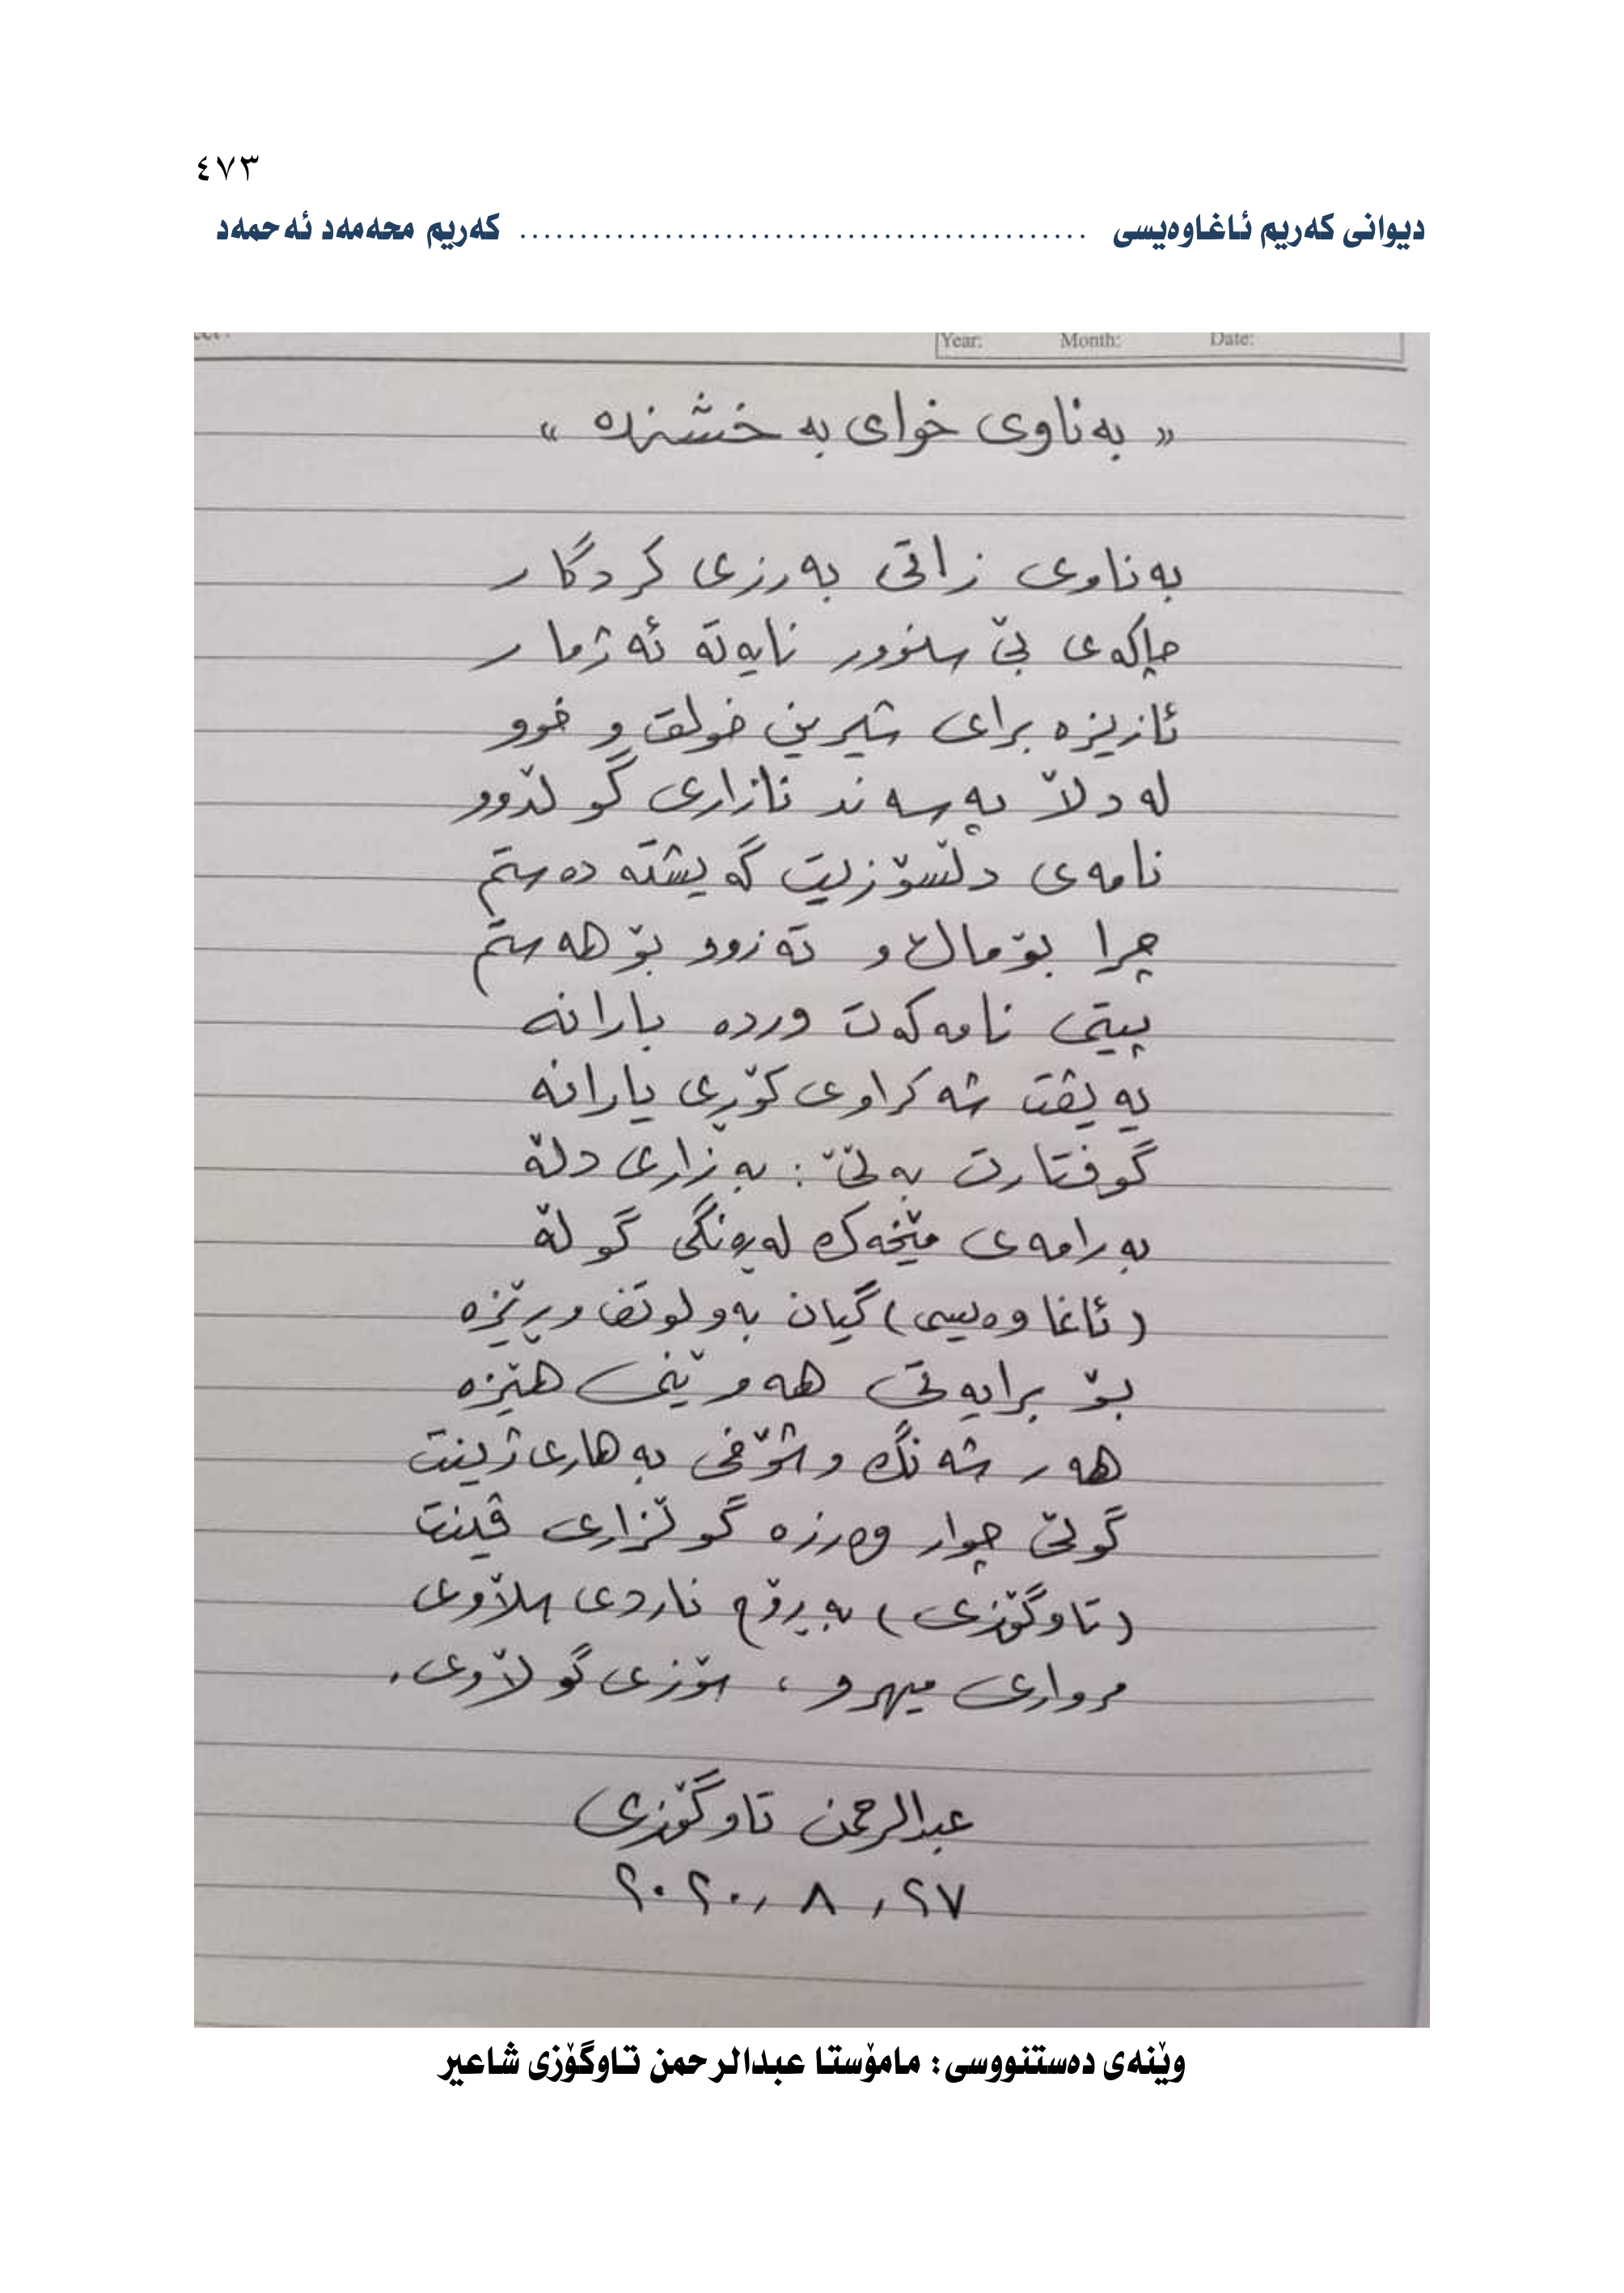 ٤٧٣
دیوانی کەریم ئاغاوەیسی ............................................... کەریم محەمەد ئەحمەد
Year: Month: Date:
« بەناوی خوای بەخشندە »
بەناوی زاتی بەرزی کردگار
چاکەی بێ سنوور نایەتە ئەژمار
ئازیزە برای شیرین خولق و خوو
لە دڵا پەسەند نازاری گوڵدوو
نامەی دڵسۆزیت گەیشتە دەستم
چرا بۆ ماڵ و تەزوو بۆ هەستم
پیتی نامەکەت وردە بارانە
پەیڤت شەکراوی کۆڕی یارانە
گوفتارت بەڵێ : بەزاری دڵە
بەرامەی مێخەک لەڕەنگی گوڵە
(ئاغا وەیسی) گیان بەو لوتف و ڕێزە
بۆ برایەتی هەوێنی هێزە
هەر شەنگ و شۆخی بەهاری ژینت
گوڵی چوار وەرزە گوڵزاری ڤینت
(تاوگۆزی) بەڕۆح ناردی سڵاوی
مرواری میهرو ، سۆزی گوڵاوی.
عبدالرحمن تاوگۆزی
٢٠٢٠،٨،٢٧
وێنەی دەستنووسی: مامۆستا عبدالرحمن تاوگۆزی شاعیر